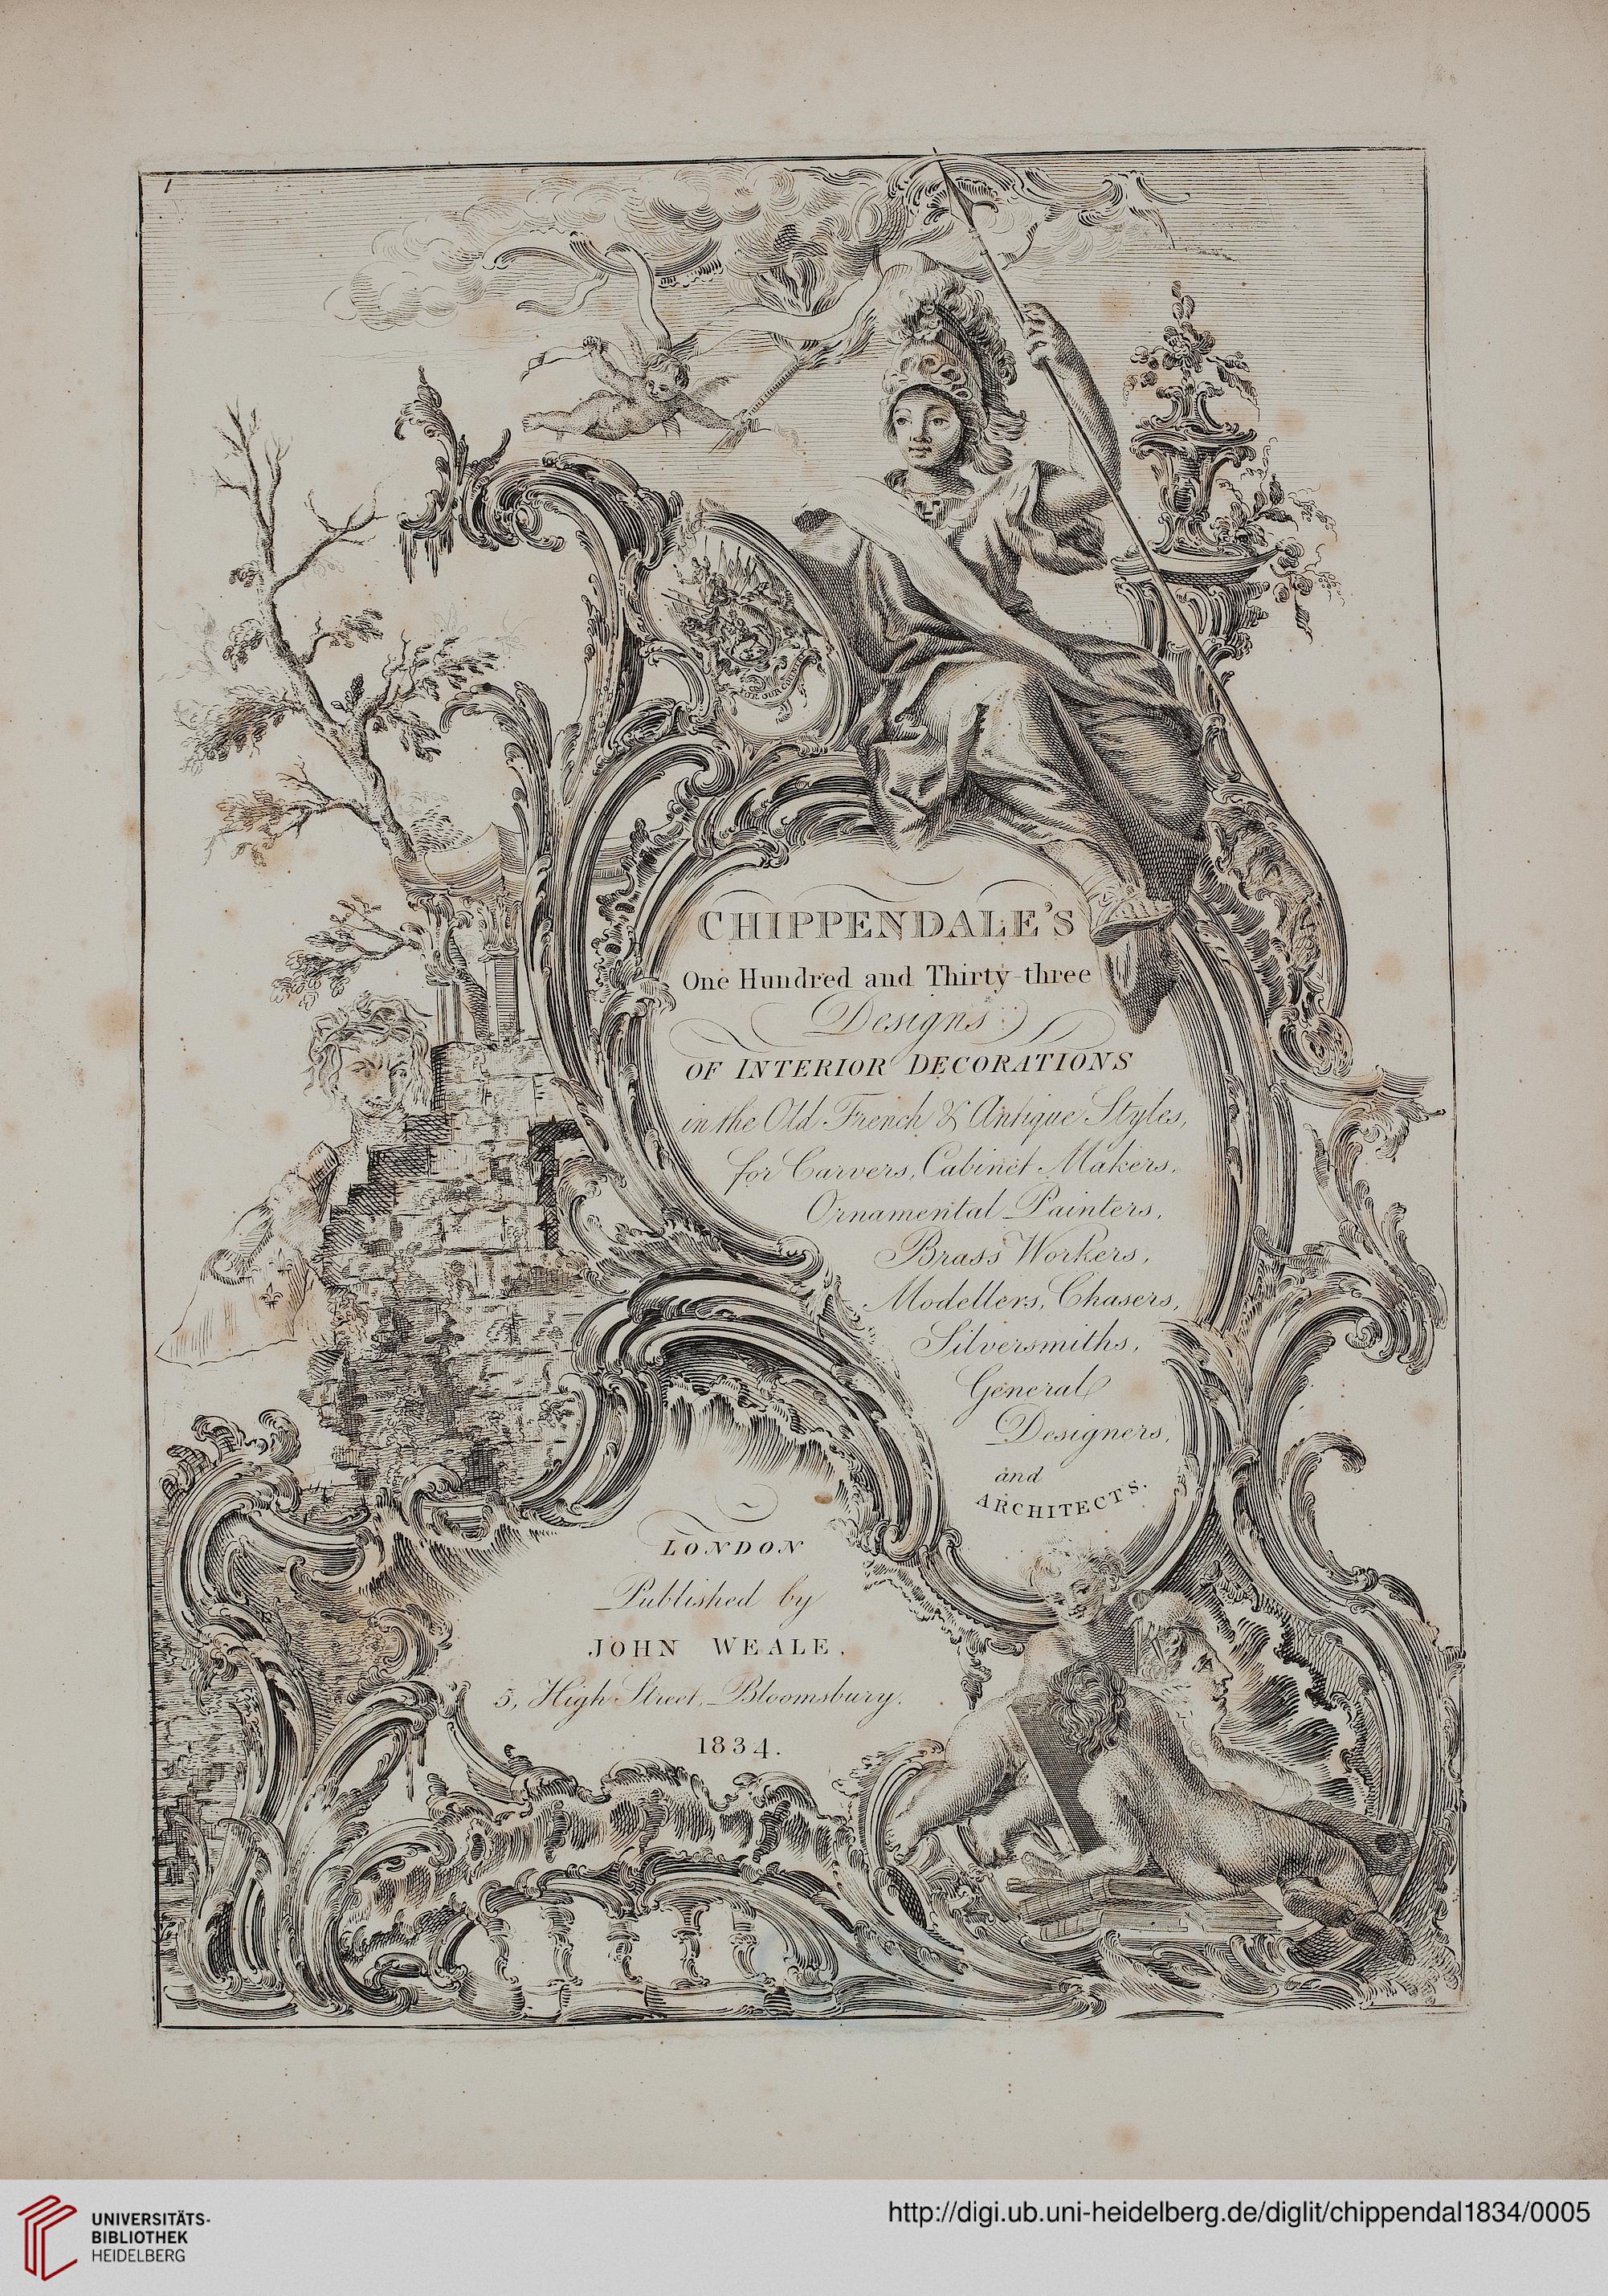 1
FOR OUR
CHIPPENDALE'S
One Hundred and Thirty-three
Designs
OF INTERIOR DECORATIONS
in the Old French & Antique Styles,
for Carvers, Cabinet Makers,
Ornamental Painters,
Brass Workers,
Modellers, Chasers,
Silversmiths,
General
Designers,
and
ARCHITECTS.
LONDON
Published by
JOHN WEALE,
5, High Street, Bloomsbury.
1834.
UNIVERSITÄTS-
BIBLIOTHEK
HEIDELBERG
http://digi.ub.uni-heidelberg.de/diglit/chippendal1834/0005